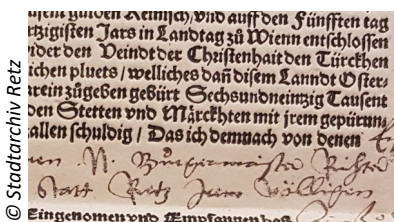 gulden Reinisch / vnd auff den Fünfften tag
tzigisten Jars in Landtag zů Wienn entschlossen
wider den Veindt der Christenhait den Türckhen
lichen pluets / welliches dañ disem Lanndt Oster-
rein zůgeben gebürt Sechsundneintzig Tausent
den Stetten vnd Märckhten mit jrem gepürun
allen schuldig / Das ich demnach von denen
N. Burgermaister Richter
Statt Retz Iren völligen
Eingenomen vnd Empfangen hab
© Stadtarchiv Retz